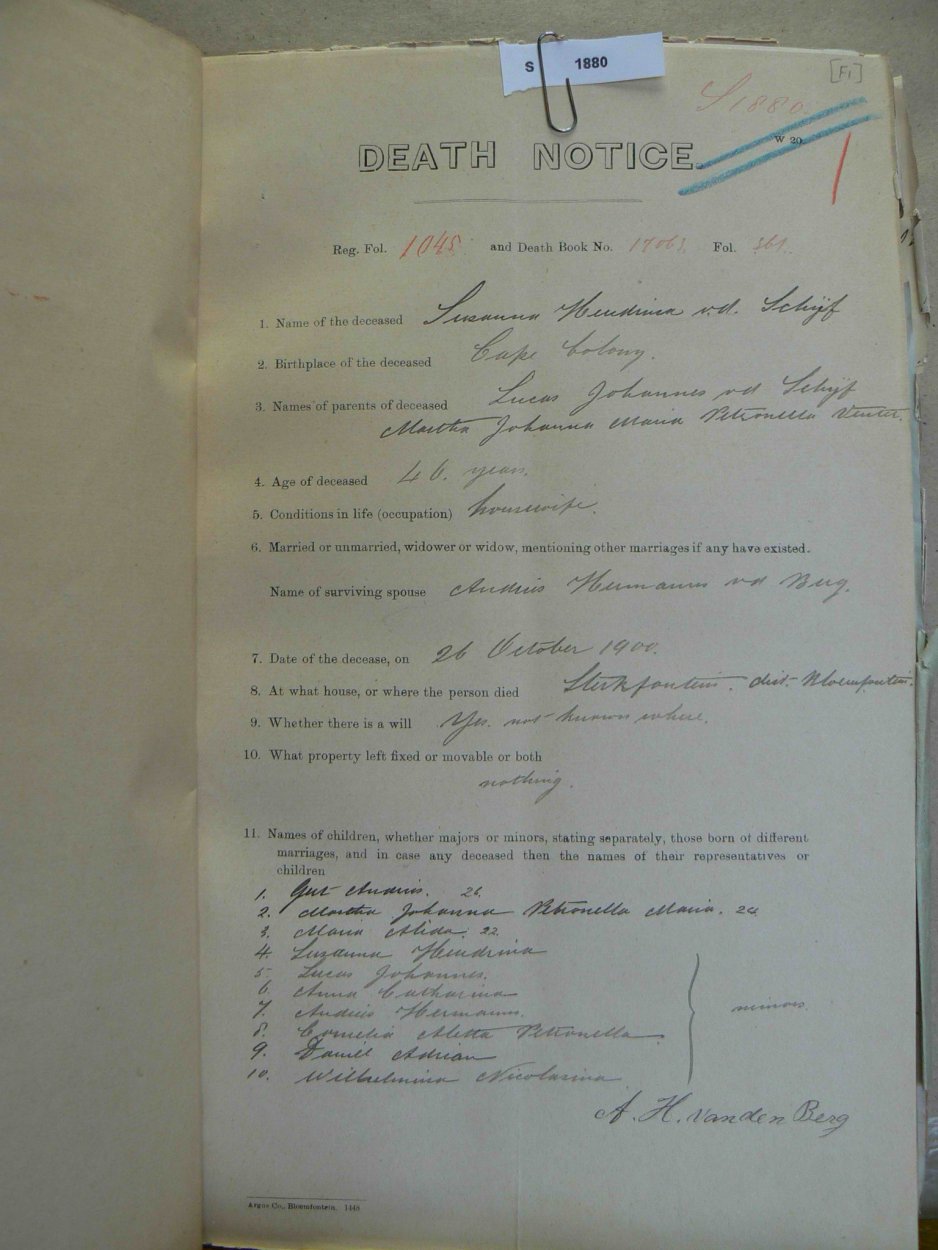 S 1880
[F1]
S 1880
W 29.
DEATH NOTICE.
Reg. Fol. 1045 and Death Book No. 17063 Fol. 361
1. Name of the deceased Susanna Hendrina v.d. Schijf
2. Birthplace of the deceased Cape Colony.
3. Names of parents of deceased Lucas Johannes vd Schijf
Martha Johanna Maria Petronella Venter.
4. Age of deceased 46. years.
5. Conditions in life (occupation) housewife.
6. Married or unmarried, widower or widow, mentioning other marriages if any have existed.
Name of surviving spouse Andries Hermanus vd Berg.
7. Date of the decease, on 26 October 1900.
8. At what house, or where the person died Sterkfontein. dist. Bloemfontein.
9. Whether there is a will Yes. not known where.
10. What property left fixed or movable or both
nothing.
11. Names of children, whether majors or minors, stating separately, those born of different
marriages, and in case any deceased then the names of their representatives or
children
1. Gert Andries. 26.
2. Martha Johanna Petronella Maria. 24
3. Maria Alida. 22.
4. Susanna Hendrina
5. Lucas Johannes.
6. Anna Catharina
7. Andries Hermanus.
minors.
8. Cornelia Aletta Petronella
9. Daniel Adrian
10. Wilhelmina Nicolasina
A. H. van den Berg
Argus Co., Bloemfontein. 1448